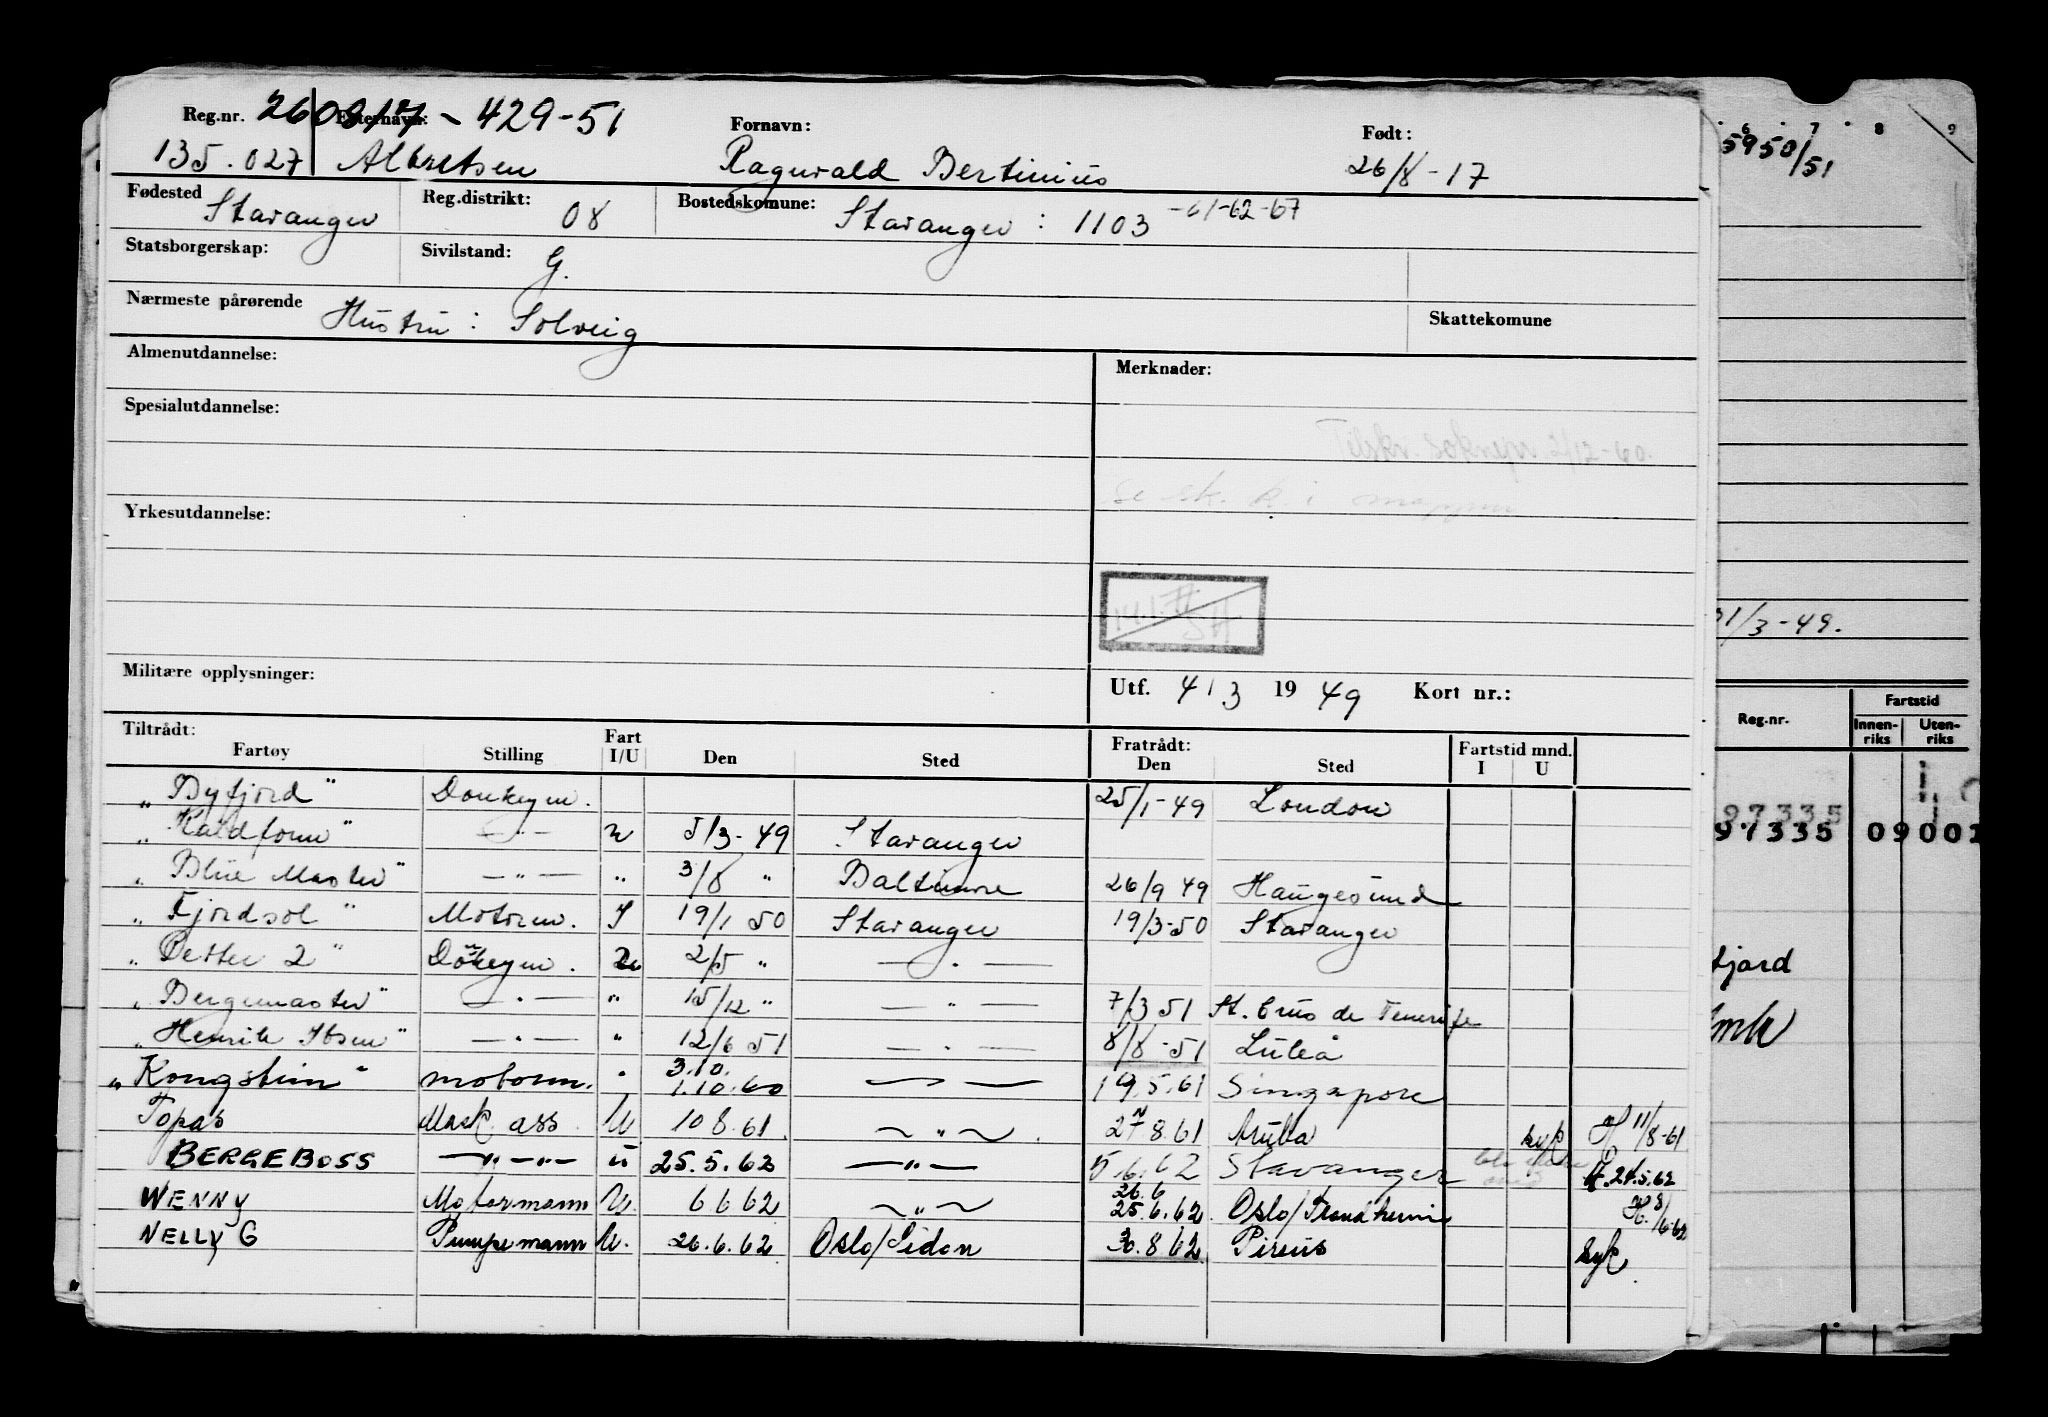 Reg.nr. 260917 - 429-51 Etternavn: Fornavn: Født:
135.027 Albretsen Ragnvald Bertinius 26/8-17
Fødested Stavanger Reg.distrikt: 08 Bostedskomune: Stavanger : 1103 -61-62-67
Statsborgerskap: Sivilstand: G.
Nærmeste pårørende Hustru : Solveig Skattekomune
Almenutdannelse: Merknader:
Spesialutdannelse:
2/12-60.
se sk. k. i mappen
Yrkesutdannelse:
Militære opplysninger: Utf. 4/3 19 49 Kort nr.:
Tiltrådt: Fart Fratrådt: Fartstid mnd.
Fartøy Stilling I/U Den Sted Den Sted I U
"Byfjord" Donkeym. 25/1-49 London
"Kaldfonn" -"- u 5/3-49 Stavanger
"Blue Master" -"- " 3/8 " Baltimore 26/9 49 Haugesund
"Fjordsol" Motorm. I 19/1 50 Stavanger 19/3-50 Stavanger
"Petter 2" Donkeym. U 2/5 " -"-
"Bergemaster" -"- " 15/12 " -"- 7/3 51 St. Crus de Tenerife
"Henrik Ibsen" -"- " 12/6 51 -"- 8/8-51 Luleå
3.10.
"Kongstein" motorm. " 1.10.60 -"- 19.5.61 Singapore
Topas Mask. ass. U 10 8.61. -"- 27.8.61 Aruba syk H 11/8-61
BERGEBOSS -"-"- U 25.5.62 -"- 5.6.62 Stavanger H.24.5.62
26.6
WENNY Motormann U. 6 6 62 -"- 25.6.62 Oslo/Trondheim H. 8/6-62
NELLY G Pumpemann U. 26.6.62 Oslo/Sidon 30.8.62 Pireus syk
6 7 8 9
5950/51
31/3-49.
Reg.nr. Fartstid
Innen-riks Uten-riks
97335
97335 09001